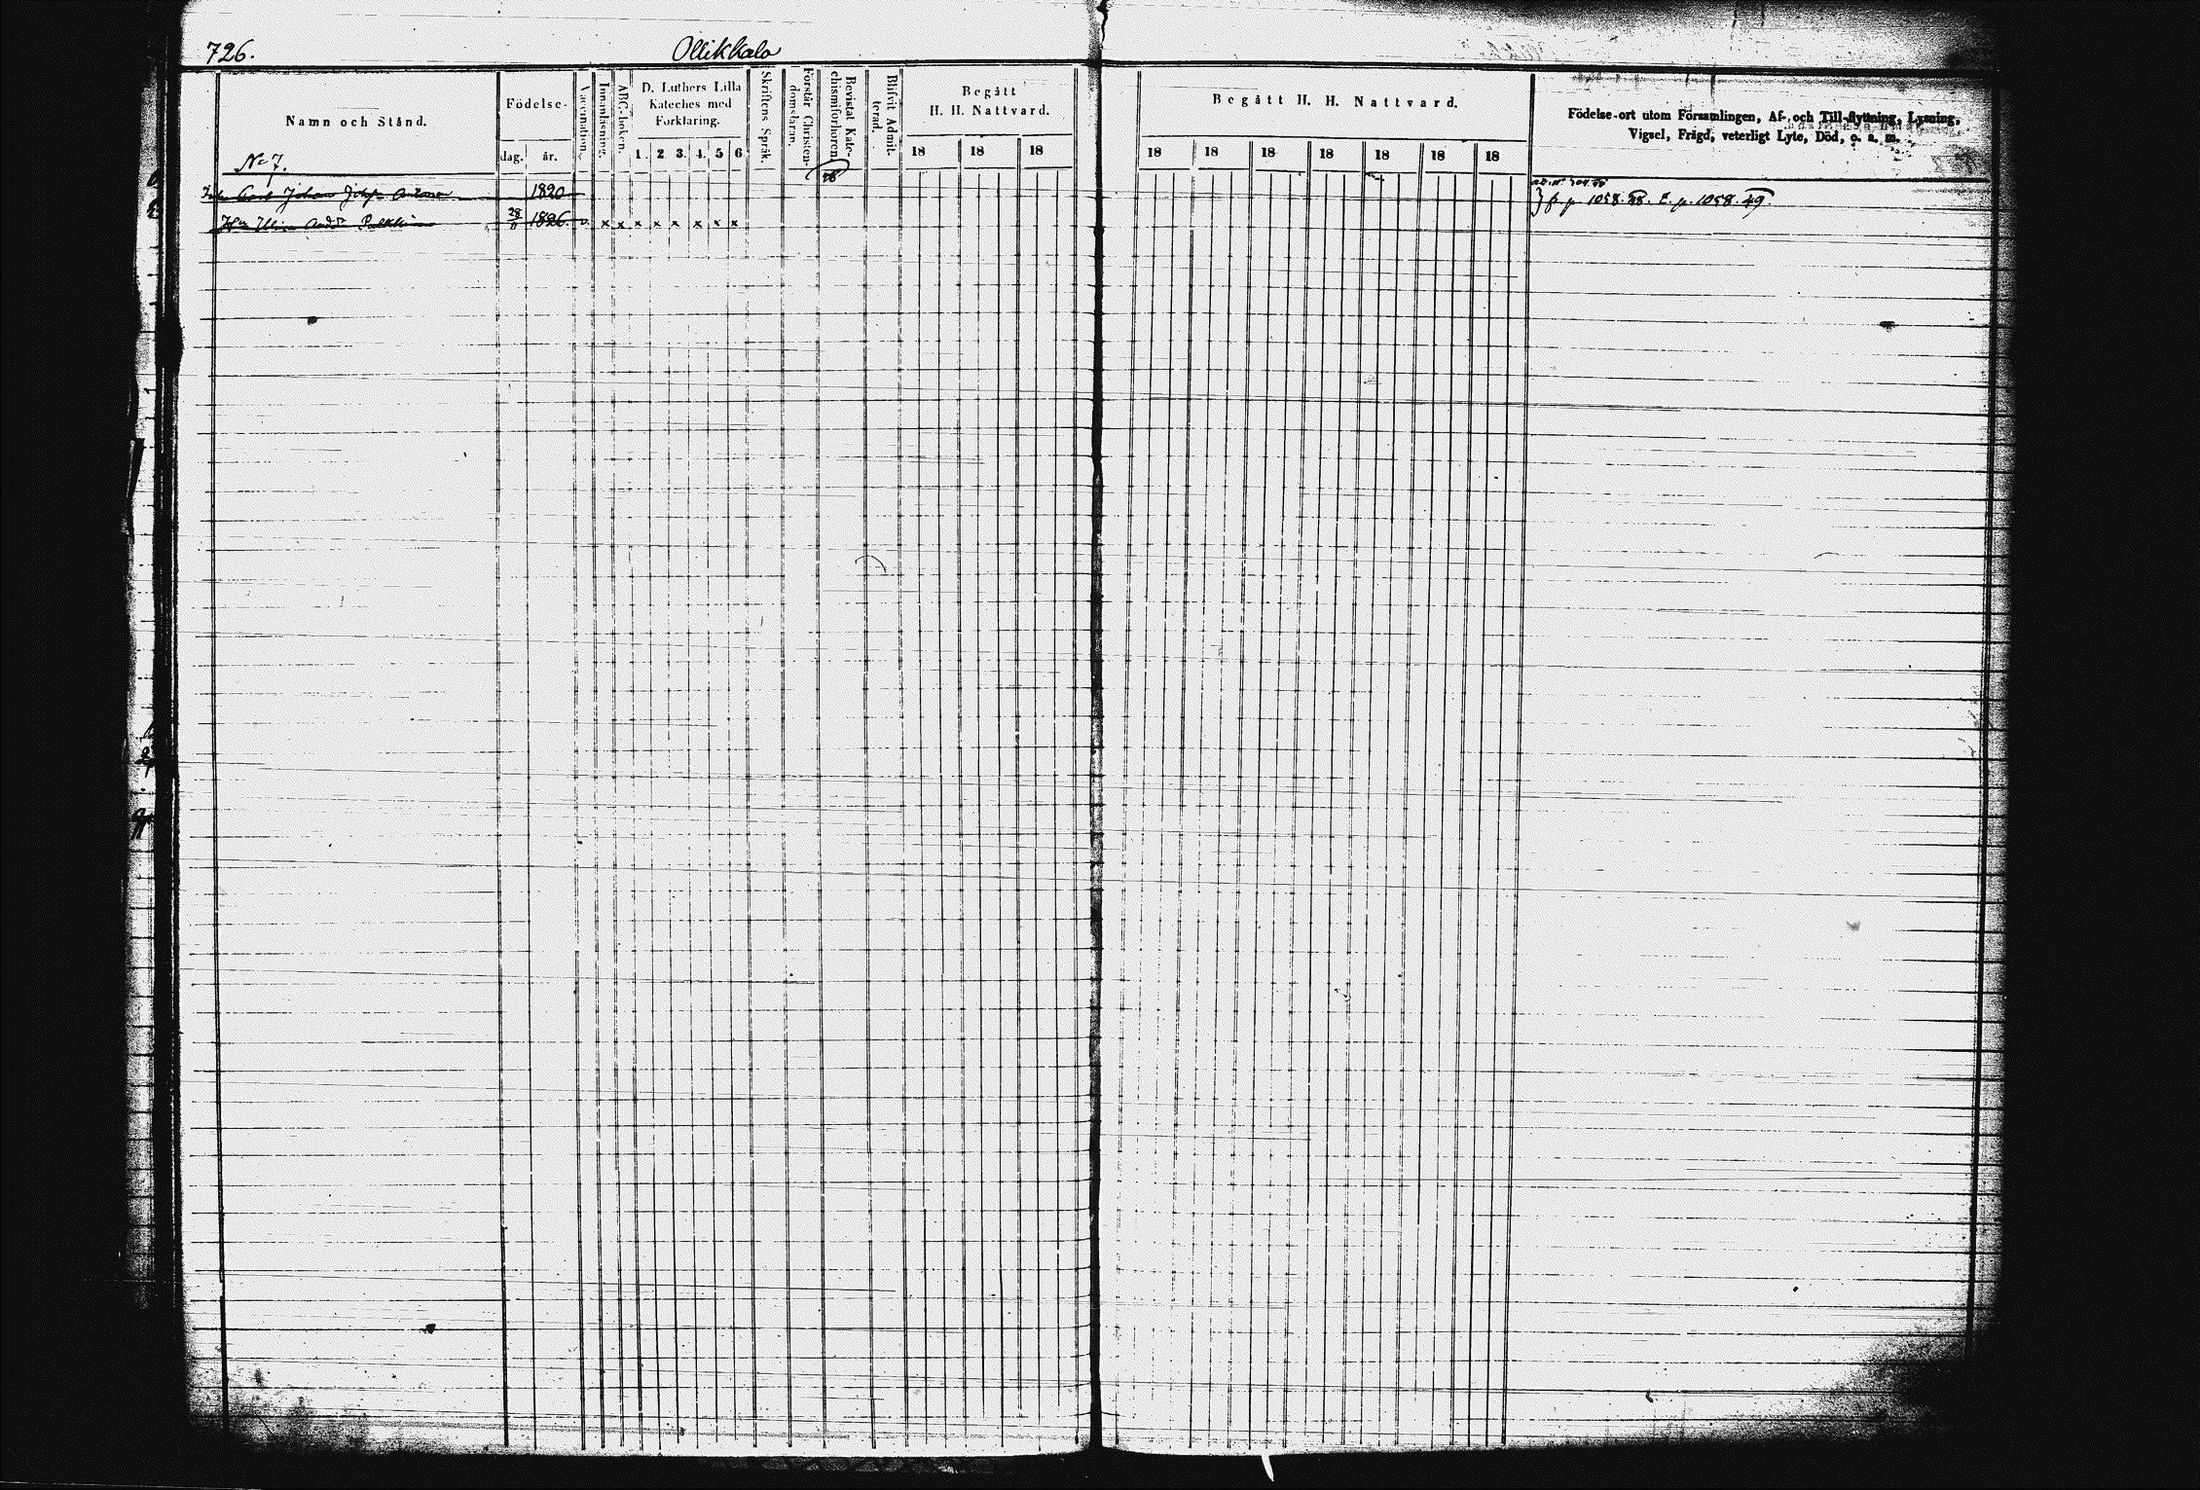 726.
Ollikkala
Namn och Stånd.
Födelse-
dag. år.
Vaccination.
Innanläsning.
ABC-boken.
D. Luthers Lilla
Kateches med
Förklaring.
1. 2 3. 4. 5 6
Skriftens Språk.
Förstår Christen-
domsläran.
Bevistat Kate-
chismiförhören
48
Blifvit Admit-
terad.
Begått
H. H. Nattvard.
18 18 18
Begått H. H. Nattvard.
18 18 18 18 18 18 18
Födelse-ort utom Församlingen, Af- och Till-flyttning, Lysning,
Vigsel, Frägd, veterligt Lyte, Död, o. a. m.
No 7.
Carl Johan 1820
1826. v. x x x x x x x x
p. 1058. 48. p. 1058. 49.